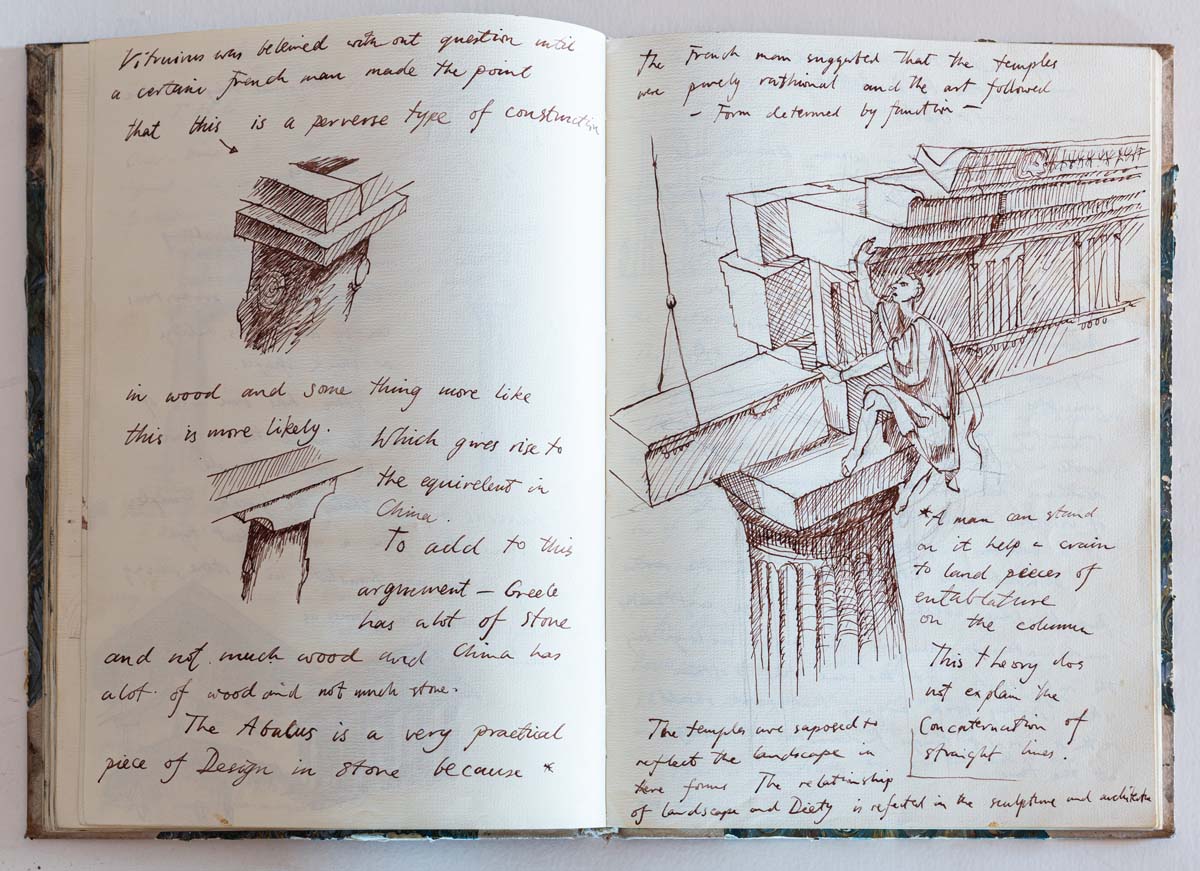 Vitruvius was beleived with out question until
a certain French man made the point
that this is a perverse type of construction
in wood and some thing more like
this is more likely.
Which gives rise to
the equivelent in
China.
To add to this
argument – Greece
has alot of stone
and not much wood and China has
alot of wood and not much stone.
The Abalus is a very practical
piece of Design in stone because *
The French man suggested that the temples
were purely rathional and the art followed
– Form determed by function –
* A man can stand
on it help a crain
to land pieces of
entablature
on the column
This theory dos
not explain the
of
straight lines.
The temples are saposed to
reflect the landscape in
there forms The relationship
of landscape and Diety is reflected in the sculpture and architecture